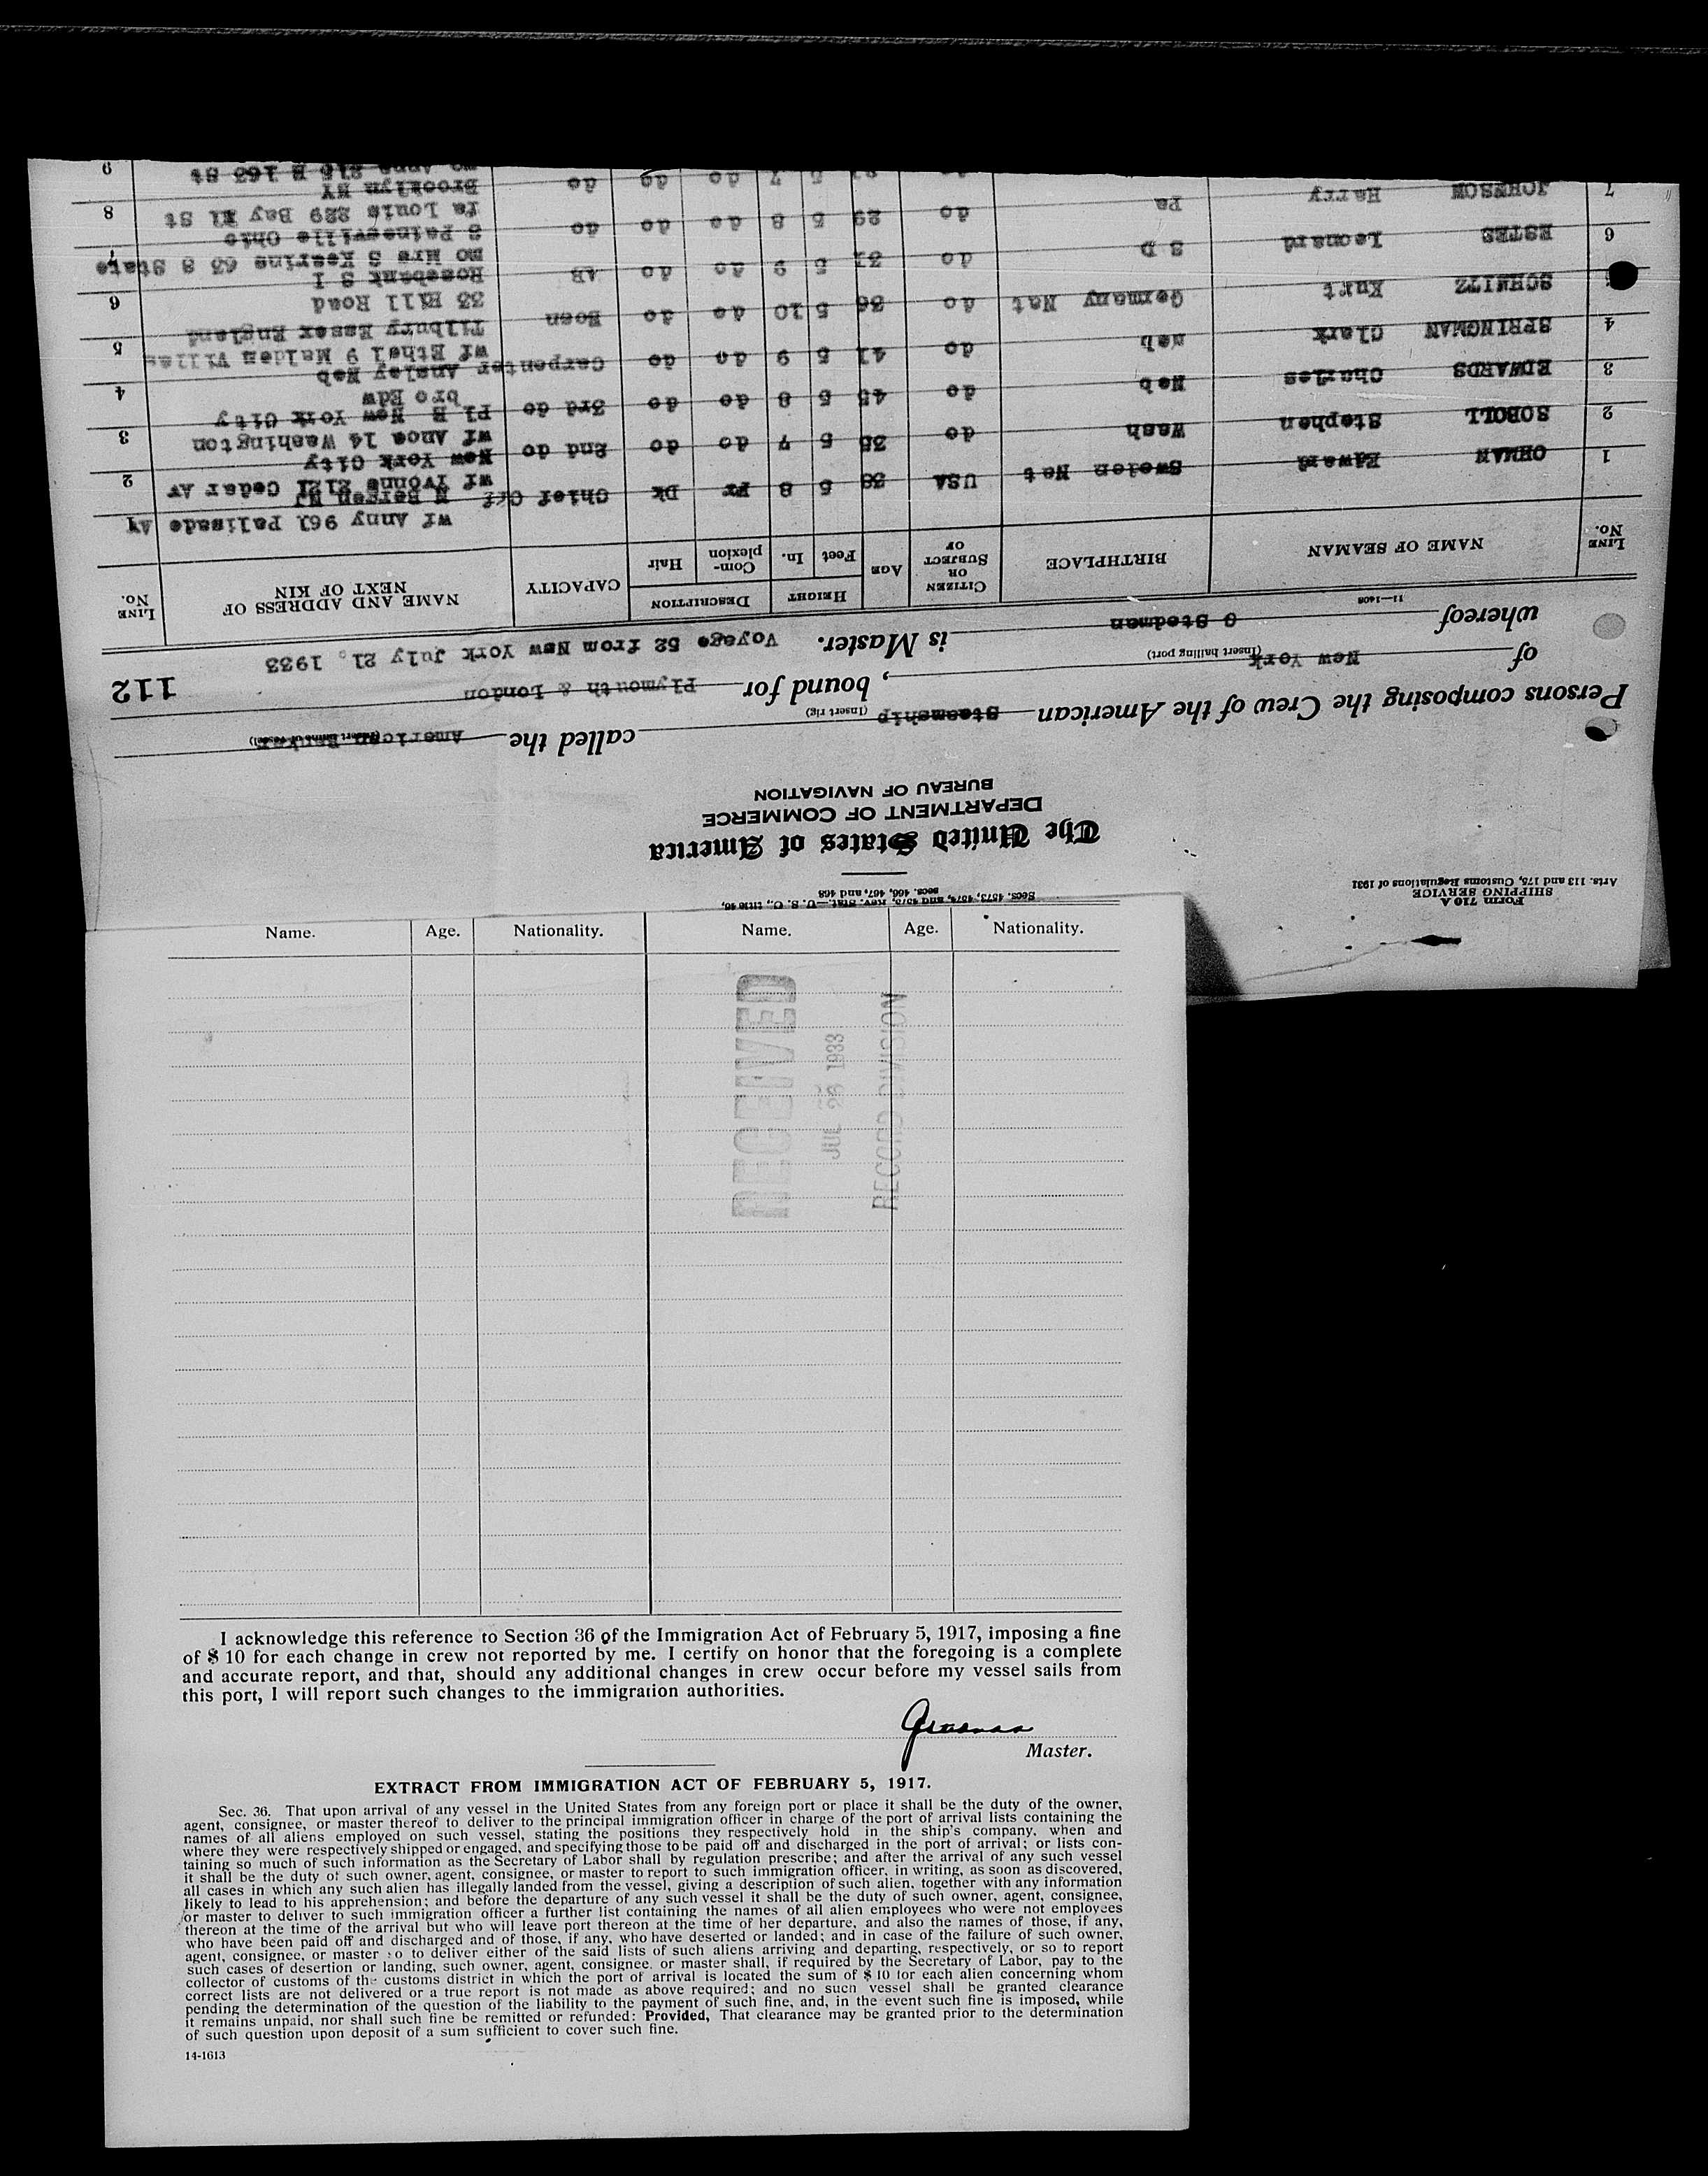 Form 710 A
SHIPPING SERVICE
Arts. 113 and 175, Customs Regulations of 1931
Secs. 4573, 4574, and 4575, Rev. Stat.—U. S. C., title 46,
secs. 466, 467, and 468
The United States of America
DEPARTMENT OF COMMERCE
BUREAU OF NAVIGATION
Persons composing the Crew of the American Steamship called the American
(Insert rig)
of New York, bound for Plymouth & London
(Insert hailing port)
112
whereof G Stedman is Master. Voyage 52 from New York July 21, 1933
11—1408
LINE No. NAME OF SEAMAN BIRTHPLACE CITIZEN OR SUBJECT OF AGE HEIGHT Feet In. DESCRIPTION Complexion Hair CAPACITY NAME AND ADDRESS OF NEXT OF KIN LINE No.
wf Anny 961 Palisade Av
1 OHMAN Edward Sweden Nat USA 38 5 8 Fr Dk Chief Off N Bergen NJ
wf Yvonne 2121 Cedar Av 2
2 SOBOLL Stephen Wash do 38 5 7 do do 2nd do New York City
wf Anoa 14 Washington 3
3 EDWARDS Charles Neb do 45 5 8 do do 3rd do Pl E New York City
bro Edw 4
4 SPRINGMAN Clark neb do 41 5 9 do do Carpenter Ansley Neb
wf Ethel 9 Malden Villas 5
SCHMITZ Kurt Germany Nat do 36 5 10 do do Bosn Tilbury Essex England
33 Hill Road 6
6 ESTES Leonard S D do 31 5 9 do do AB Rosebank S I
mo Mrs S Kearins 63 S State 7
7 JOHNSON Harry Pa do 29 5 8 do do do S Painesville Ohio
fa Louis 229 Bay 11 St 8
do 5 7 do do do Brooklyn NY
mo Anna 215 E 163 St 9
Name. Age. Nationality. Name. Age. Nationality.
RECEIVED
JUL 26 1933
RECORD DIVISION
I acknowledge this reference to Section 36 of the Immigration Act of February 5, 1917, imposing a fine
of $ 10 for each change in crew not reported by me. I certify on honor that the foregoing is a complete
and accurate report, and that, should any additional changes in crew occur before my vessel sails from
this port, I will report such changes to the immigration authorities.
Master.
EXTRACT FROM IMMIGRATION ACT OF FEBRUARY 5, 1917.
Sec. 36. That upon arrival of any vessel in the United States from any foreign port or place it shall be the duty of the owner,
agent, consignee, or master thereof to deliver to the principal immigration officer in charge of the port of arrival lists containing the
names of all aliens employed on such vessel, stating the positions they respectively hold in the ship's company, when and
where they were respectively shipped or engaged, and specifying those to be paid off and discharged in the port of arrival; or lists con-
taining so much of such information as the Secretary of Labor shall by regulation prescribe; and after the arrival of any such vessel
it shall be the duty of such owner, agent, consignee, or master to report to such immigration officer, in writing, as soon as discovered,
all cases in which any such alien has illegally landed from the vessel, giving a description of such alien, together with any information
likely to lead to his apprehension; and before the departure of any such vessel it shall be the duty of such owner, agent, consignee,
or master to deliver to such immigration officer a further list containing the names of all alien employees who were not employees
thereon at the time of the arrival but who will leave port thereon at the time of her departure, and also the names of those, if any,
who have been paid off and discharged and of those, if any, who have deserted or landed; and in case of the failure of such owner,
agent, consignee, or master so to deliver either of the said lists of such aliens arriving and departing, respectively, or so to report
such cases of desertion or landing, such owner, agent, consignee, or master shall, if required by the Secretary of Labor, pay to the
collector of customs of the customs district in which the port of arrival is located the sum of $ 10 for each alien concerning whom
correct lists are not delivered or a true report is not made as above required; and no such vessel shall be granted clearance
pending the determination of the question of the liability to the payment of such fine, and, in the event such fine is imposed, while
it remains unpaid, nor shall such fine be remitted or refunded: Provided, That clearance may be granted prior to the determination
of such question upon deposit of a sum sufficient to cover such fine.
14-1613